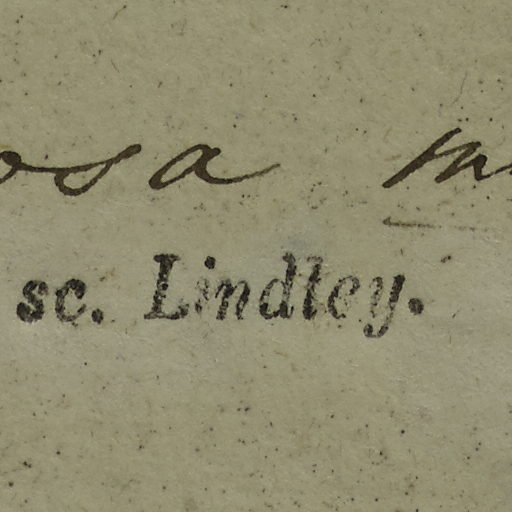 osa m
sc. Lindley.